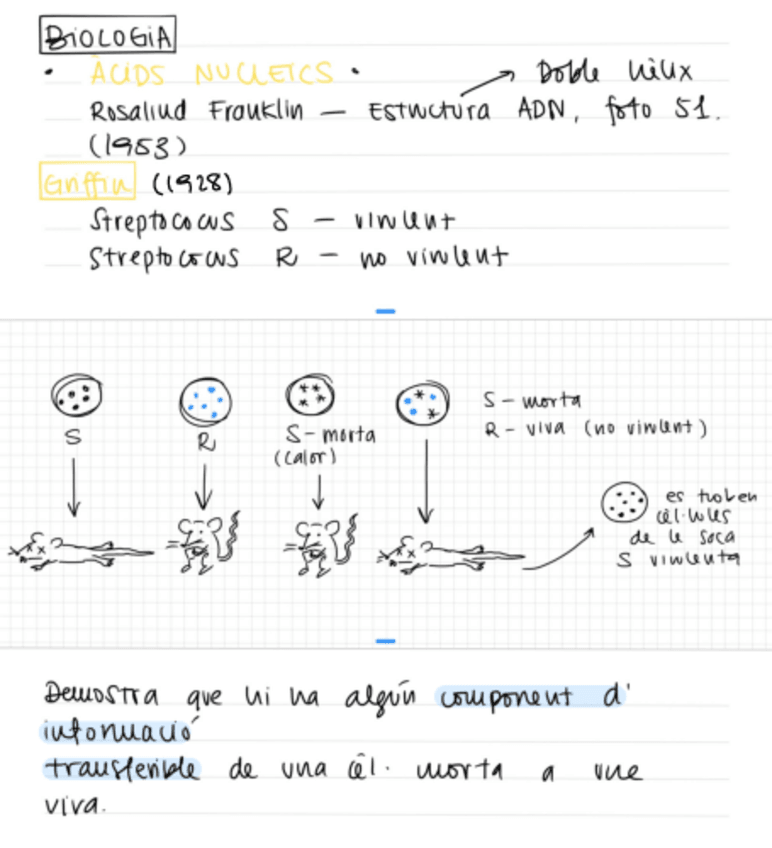 BIOLOGIA
• ÀCIDS NUCLEICS •
Doble hèlix
Rosalind Franklin — Estructura ADN, foto 51.
(1953)
Griffin (1928)
Streptococus S — virulent
Streptococus R — no virulent
S
R
S-morta
(calor)
S-morta
R-viva (no virulent)
es troben
cèl·lules
de le soca
S virulenta
Demostra que hi ha algún component d'
informació
transferible de una cèl. morta a une
viva.